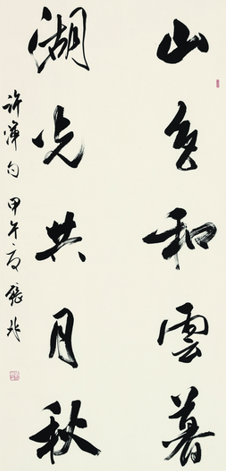 山色和雲暮
湖光共月秋
許渾句 甲午夏 張